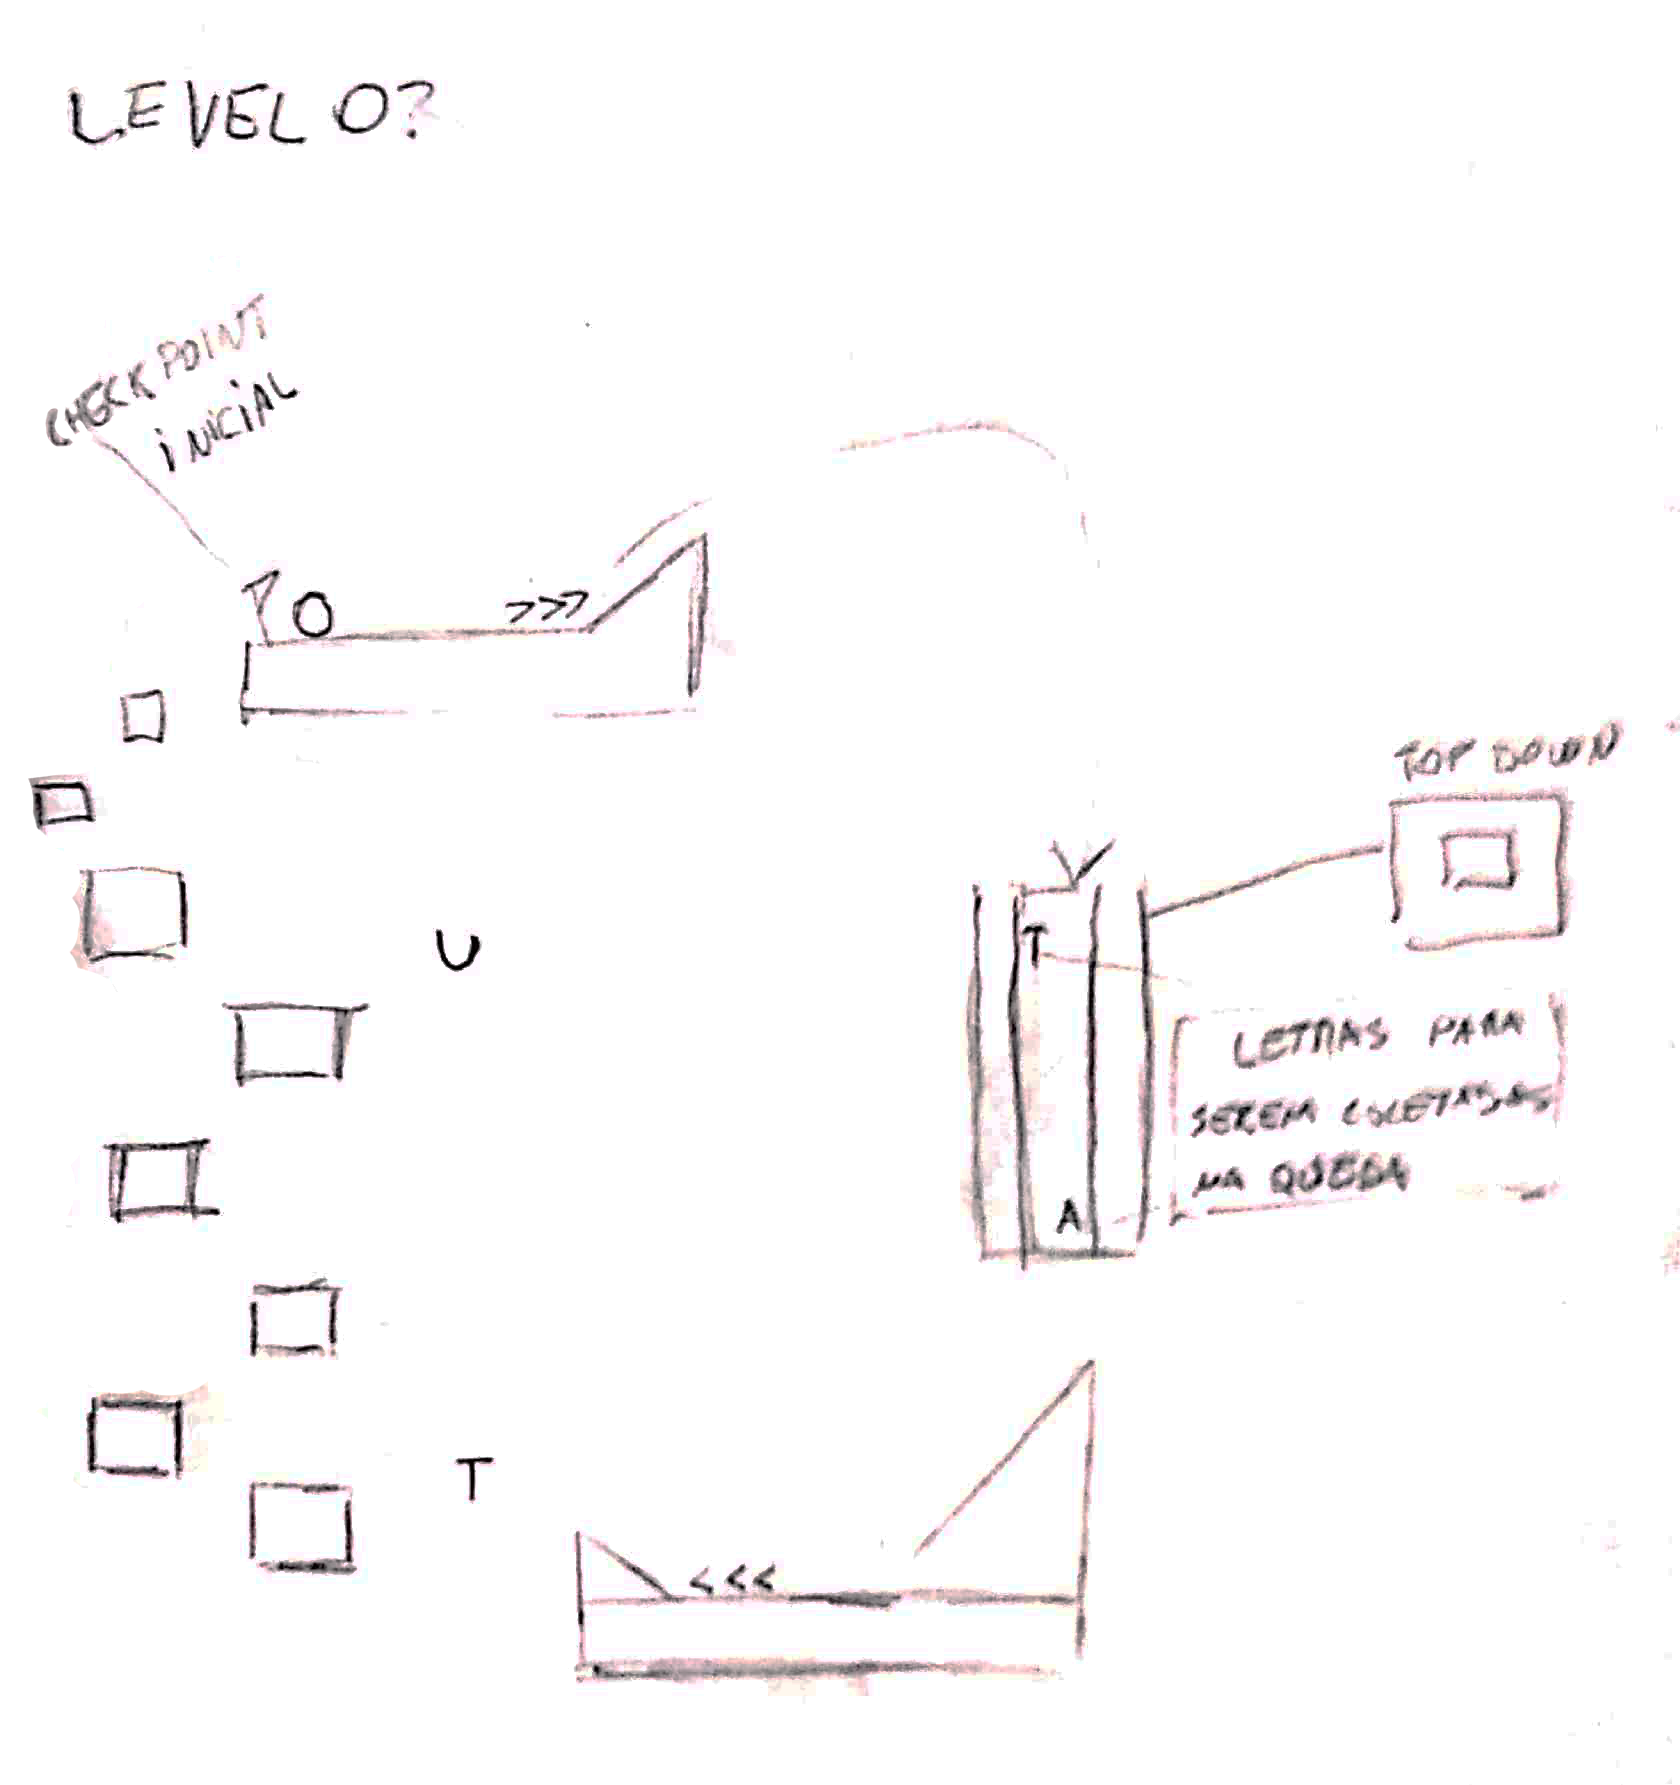 LEVEL 0?
CHECKPOINT
INICIAL
O
>>>
TOP DOWN
T
U
LETRAS PARA
SEREM COLETADAS
NA QUEDA
A
T
<<<